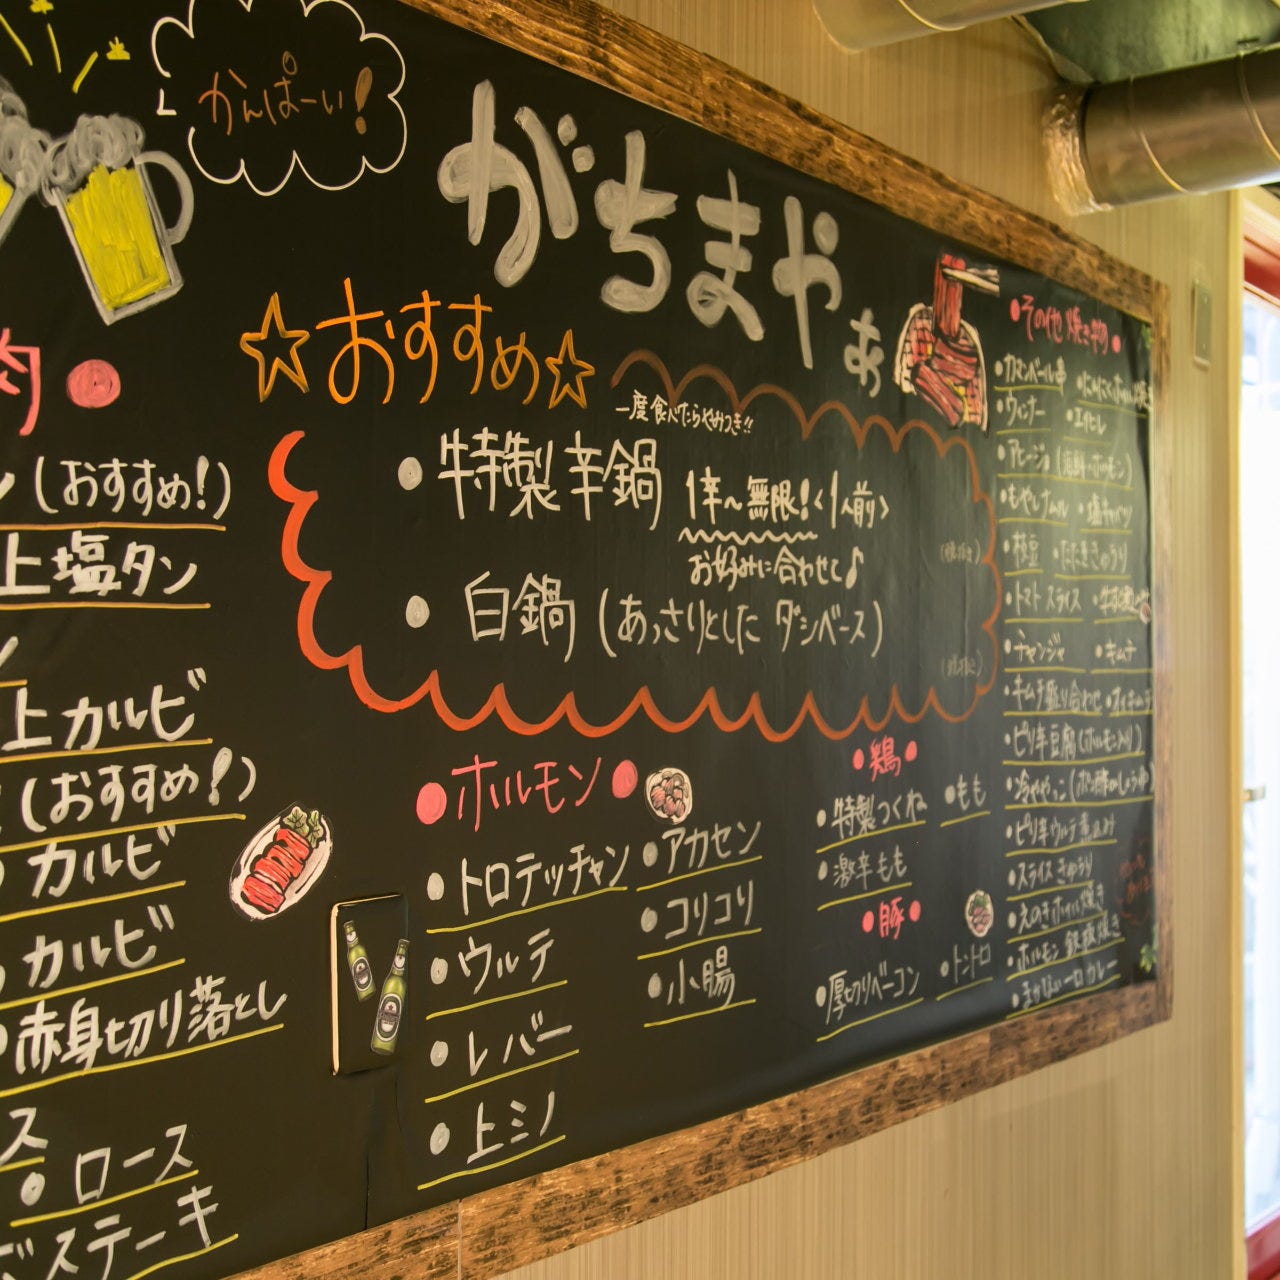 かんぱーい!
がちまやぁ
☆おすすめ☆
一度食べたらやみつき!!
・特製辛鍋 1辛〜無限!<1人前>
お好みに合わせて♪
・白鍋(あっさりとしたダシベース)
肉
(おすすめ!)
上塩タン
上カルビ
(おすすめ!)
カルビ
カルビ
・赤身切り落とし
ス
・ロース
ステーキ
・ホルモン・
・トロテッチャン ・アカセン
・ウルテ ・コリコリ
・レバー ・小腸
・上ミノ
・鶏・
・特製つくね ・もも
・激辛もも
・豚・
・厚切りベーコン ・トントロ
・その他焼き物・
・カマンベール串
・ウィンナー ・エイヒレ
・アヒージョ(海鮮・ホルモン)
・もやしナムル ・塩キャベツ
・枝豆 ・たたききゅうり
・トマトスライス
・チャンジャ ・キムチ
・キムチ盛り合わせ ・オイキムチ
・ピリ辛豆腐(ホルモン入り)
・冷ややっこ
・ピリ辛ウルテ煮込み
・スライスきゅうり
・えのきホイル焼き
・ホルモン鉄板焼き
カレー